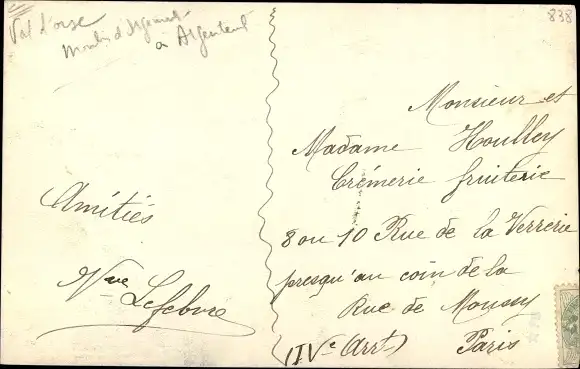 Val d'oise
Moulin d'Orgemont
à Argenteuil
838
Amitiés
Vve Lefebvre
Monsieur et
Madame Houlley
Crémerie fruiterie
8 ou 10 Rue de la Verrerie
presqu'au coin de la
Rue de Moussy
(IVe Arrt) Paris